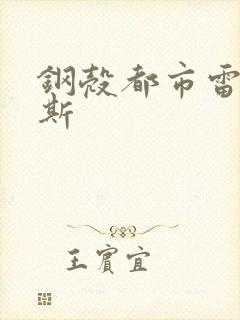 鋼殼都市雷
斯
王賓宜